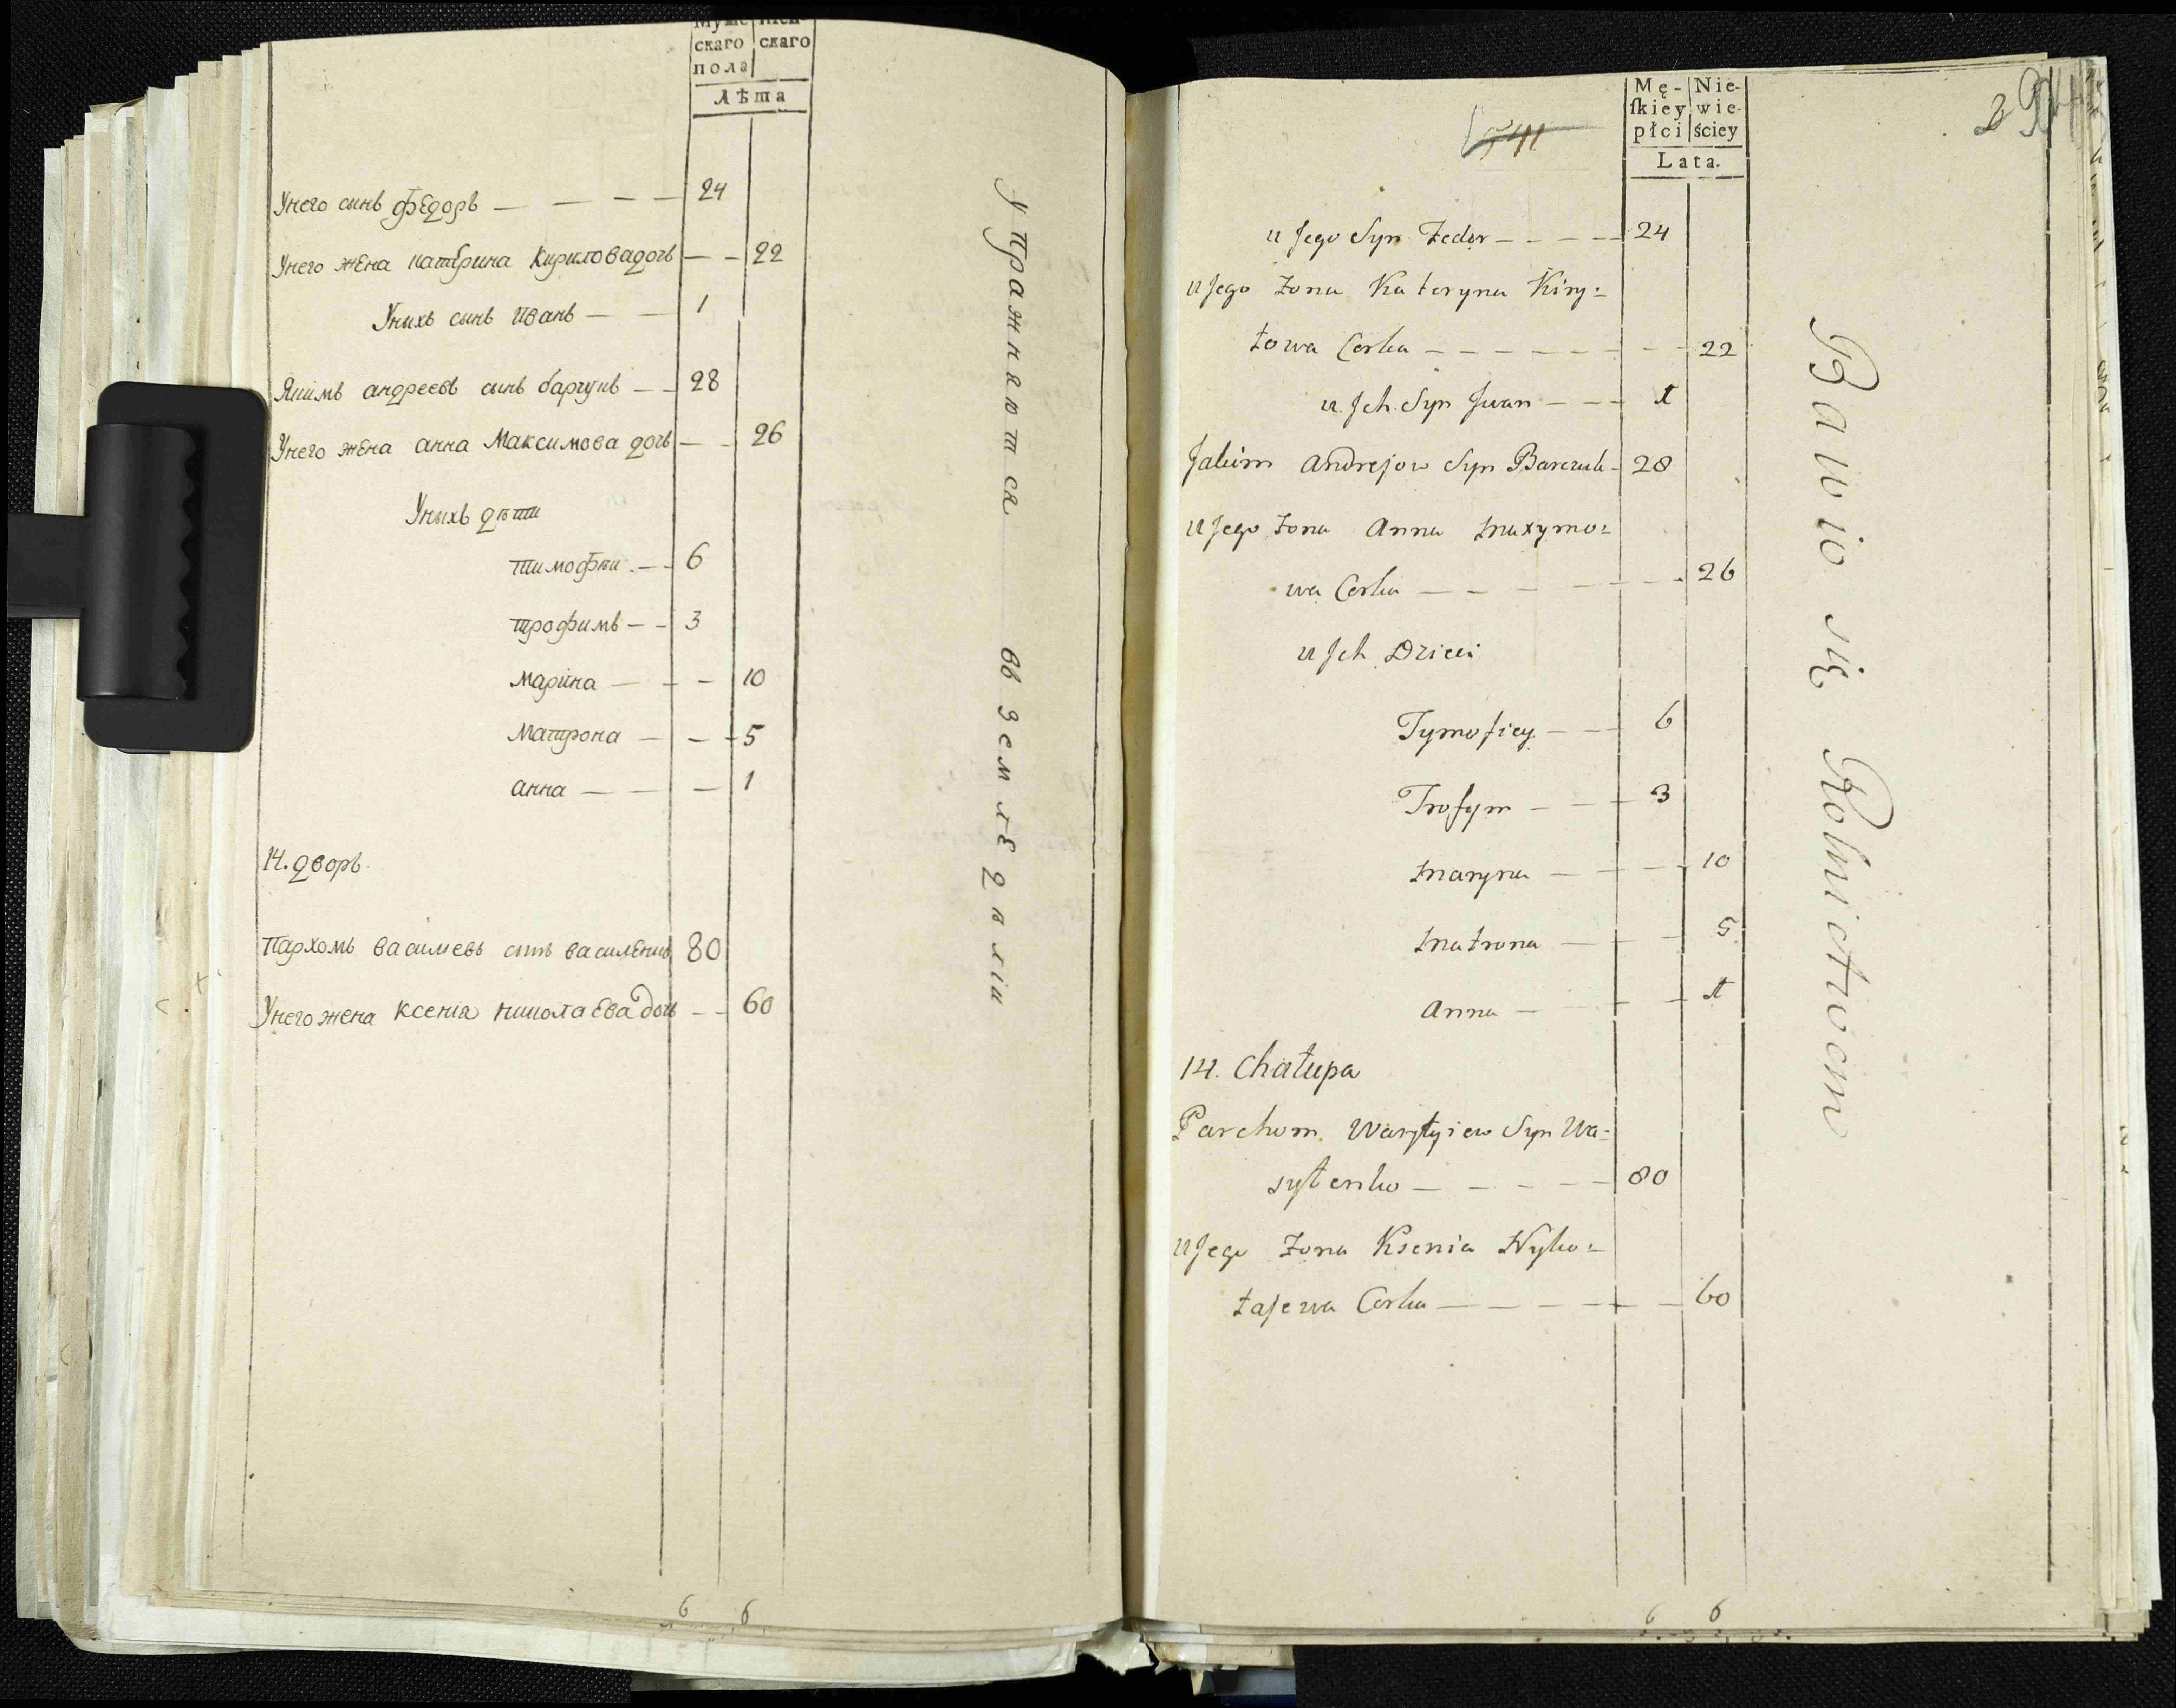 Муже Жен-
скаго скаго
пола
Лѣта
Унего сынъ федоръ — — — — 24
Унего жена катерина Кириловадочь — — 22
Унихъ сынъ иванъ — — 1
Якимъ андреевъ сынъ барчукъ — — 28
Унего жена анна Максимова дочь — — 26
Унихъ дѣти
тимофѣи — — 6
трофимъ — — 3
марина — — — 10
Матрона — — — 5
анна — — — 1
14. дворъ
Пархомъ василиевъ сынъ василенко 80
Унего жена ксения николаева дочь — — 60
упражняются въ земледѣлiи
6 6
541
294
Mę- Nie-
ſkiey wie-
płci ściey
Lata.
u Jego Syn Fedor — — — — 24
u Jego Żona Kateryna Kiry=
łowa Corka — — — — — — — 22
u Jch Syn Jwan — — — 1
Jakim Andrejow Syn Barczuk - 28
u Jego Żona Anna Maxymo=
wa Corka — — — — — — 26
u Jch Dzieci
Tymofiey — — 6
Trofym — — 3
Maryna — — — 10
Matrona — — — 5
Anna — — — 1
14. Chałupa
Parchom Wasylyiew Syn Wa=
syłenko — — — — — 80
u Jego Żona Ksenia Nyko=
łajewa Corka — — — — — — 60
Bawio się Rolnictwem
6 6